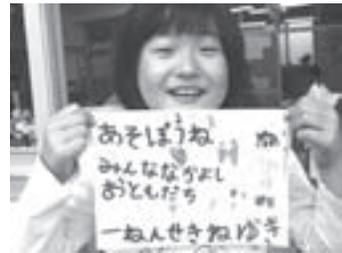 あそぼうね
みんななかよし
おともだち
一ねんせきねゆき